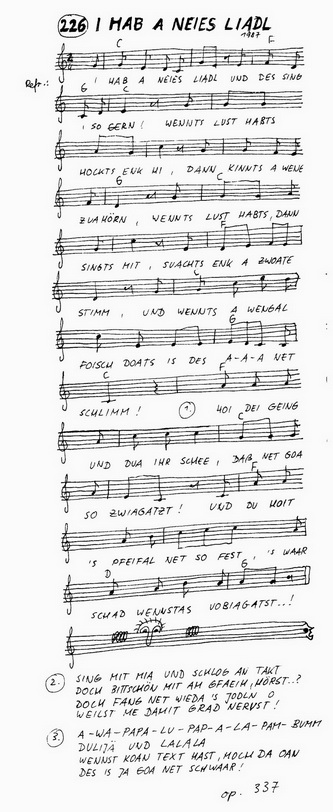 226 I HAB A NEIES LIADL
1987
C F
Refr.: I HAB A NEIES LIADL UND DES SING
G C
I SO GERN! WENNTS LUST HABTS
HOCKTS ENK HI, DANN KINNTS A WENG
G C
ZUAHÖRN, WENNTS LUST HABTS, DANN
F
SINGTS MIT, SUACHTS ENK A ZWOATE
C
STIMM, UND WENNTS A WENGAL
G
FOISCH DOATS IS DES A-A-A NET
C F
SCHLIMM! 1. HOI DEI GEING
C
UND DUA IHR SCHEE, DAß NET GOA
F
SO ZWIAGATZT! UND DU HOIT
'S PFEIFAL NET SO FEST, 'S WAAR
D G
SCHAD WENNSTAS VOBIAGATST..!
2. SING MIT MIA UND SCHLOG AN TAKT
DOCH BITTSCHÖN MIT AM GFAEIH, HÖRST..?
DOCH FANG NET WIEDA 'S JODLN O
WEILST ME DAMIT GRAD NERVST!
3. A-WA-PAPA-LU-PAP-A-LA-PAM-BUMM
DULIJÄ UND LALALA
WENNST KOAN TEXT HAST, MOCH DA OAN
DES IS JA GOA NET SCHWAAR!
op. 337